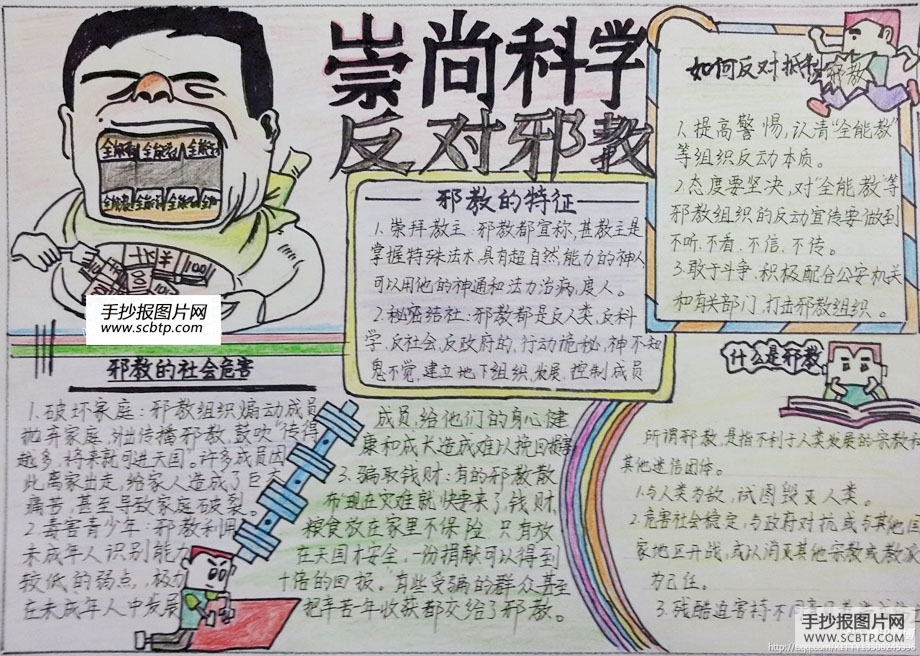 崇尚科学
反对邪教
全能 全能 全能
全能 全能 全能
手抄报图片网
www.scbtp.com
邪教的特征
1、崇拜教主:邪教都宣称,其教主是
掌握特殊法术,具有超自然能力的神人
可以用他的神通和法力治病,度人。
2、秘密结社:邪教都是反人类,反科
学,反社会,反政府的,行动诡秘,神不知
鬼不觉,建立地下组织,发展、控制成员
如何反对抵制邪教
1、提高警惕,认清“全能教”
等组织反动本质。
2、态度要坚决,对“全能教”等
邪教组织的反动宣传要做到
不听、不看、不信、不传。
3、敢于斗争,积极配合公安机关
和有关部门,打击邪教组织。
邪教的社会危害
1、破坏家庭:邪教组织煽动成员
抛弃家庭,外出传播邪教,鼓吹“传得
越多,将来就可进天国”。许多成员因
此离家出走,给家人造成了巨大
痛苦,甚至导致家庭破裂。
2、毒害青少年:邪教利用
未成年人识别能力
较低的弱点,极力
在未成年人中发展
成员,给他们的身心健
康和成长造成难以挽回损害
3、骗取钱财:有的邪教散
布“现在灾难就快要来了,钱财,
粮食放在家里不保险,只有放
在天国才安全,一份捐献可以得到
十倍的回报。”有些受骗的群众甚至
把辛苦一年收获都交给了邪教。
什么是邪教
所谓邪教,是指不利于人类发展的宗教或
其他迷信团体。
1.与人类为敌,试图毁灭人类。
2.危害社会稳定,与政府对抗或与其他国
家地区开战,或以消灭其他宗教或教派
为己任。
3.残酷迫害持不同
手抄报图片网
WWW.SCBTP.COM